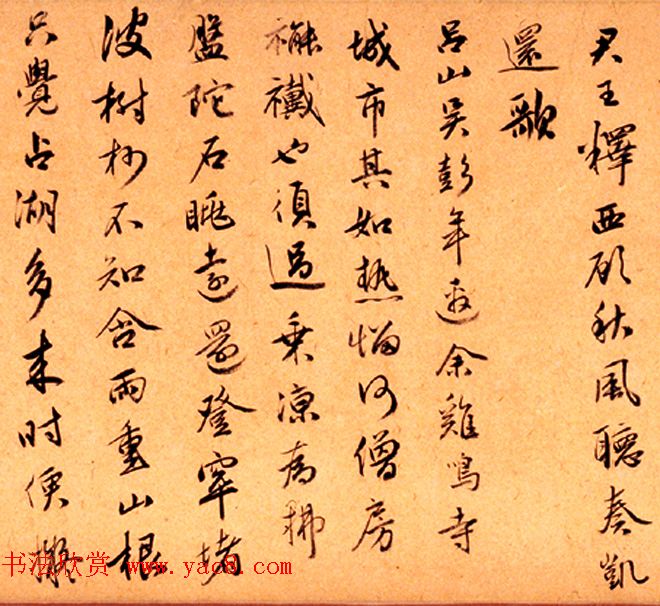 君王釋西顧秋風聽奏凱
還歌
呂山吴彭年邀余雞鳴寺
城市其如熱惱何僧房
褦襶也須過乘凉為拂
盤陀石眺遠還登窣堵
波樹杪不知含雨重山根
只覺占湖多来时便擬
书法欣赏 www.yac8.com